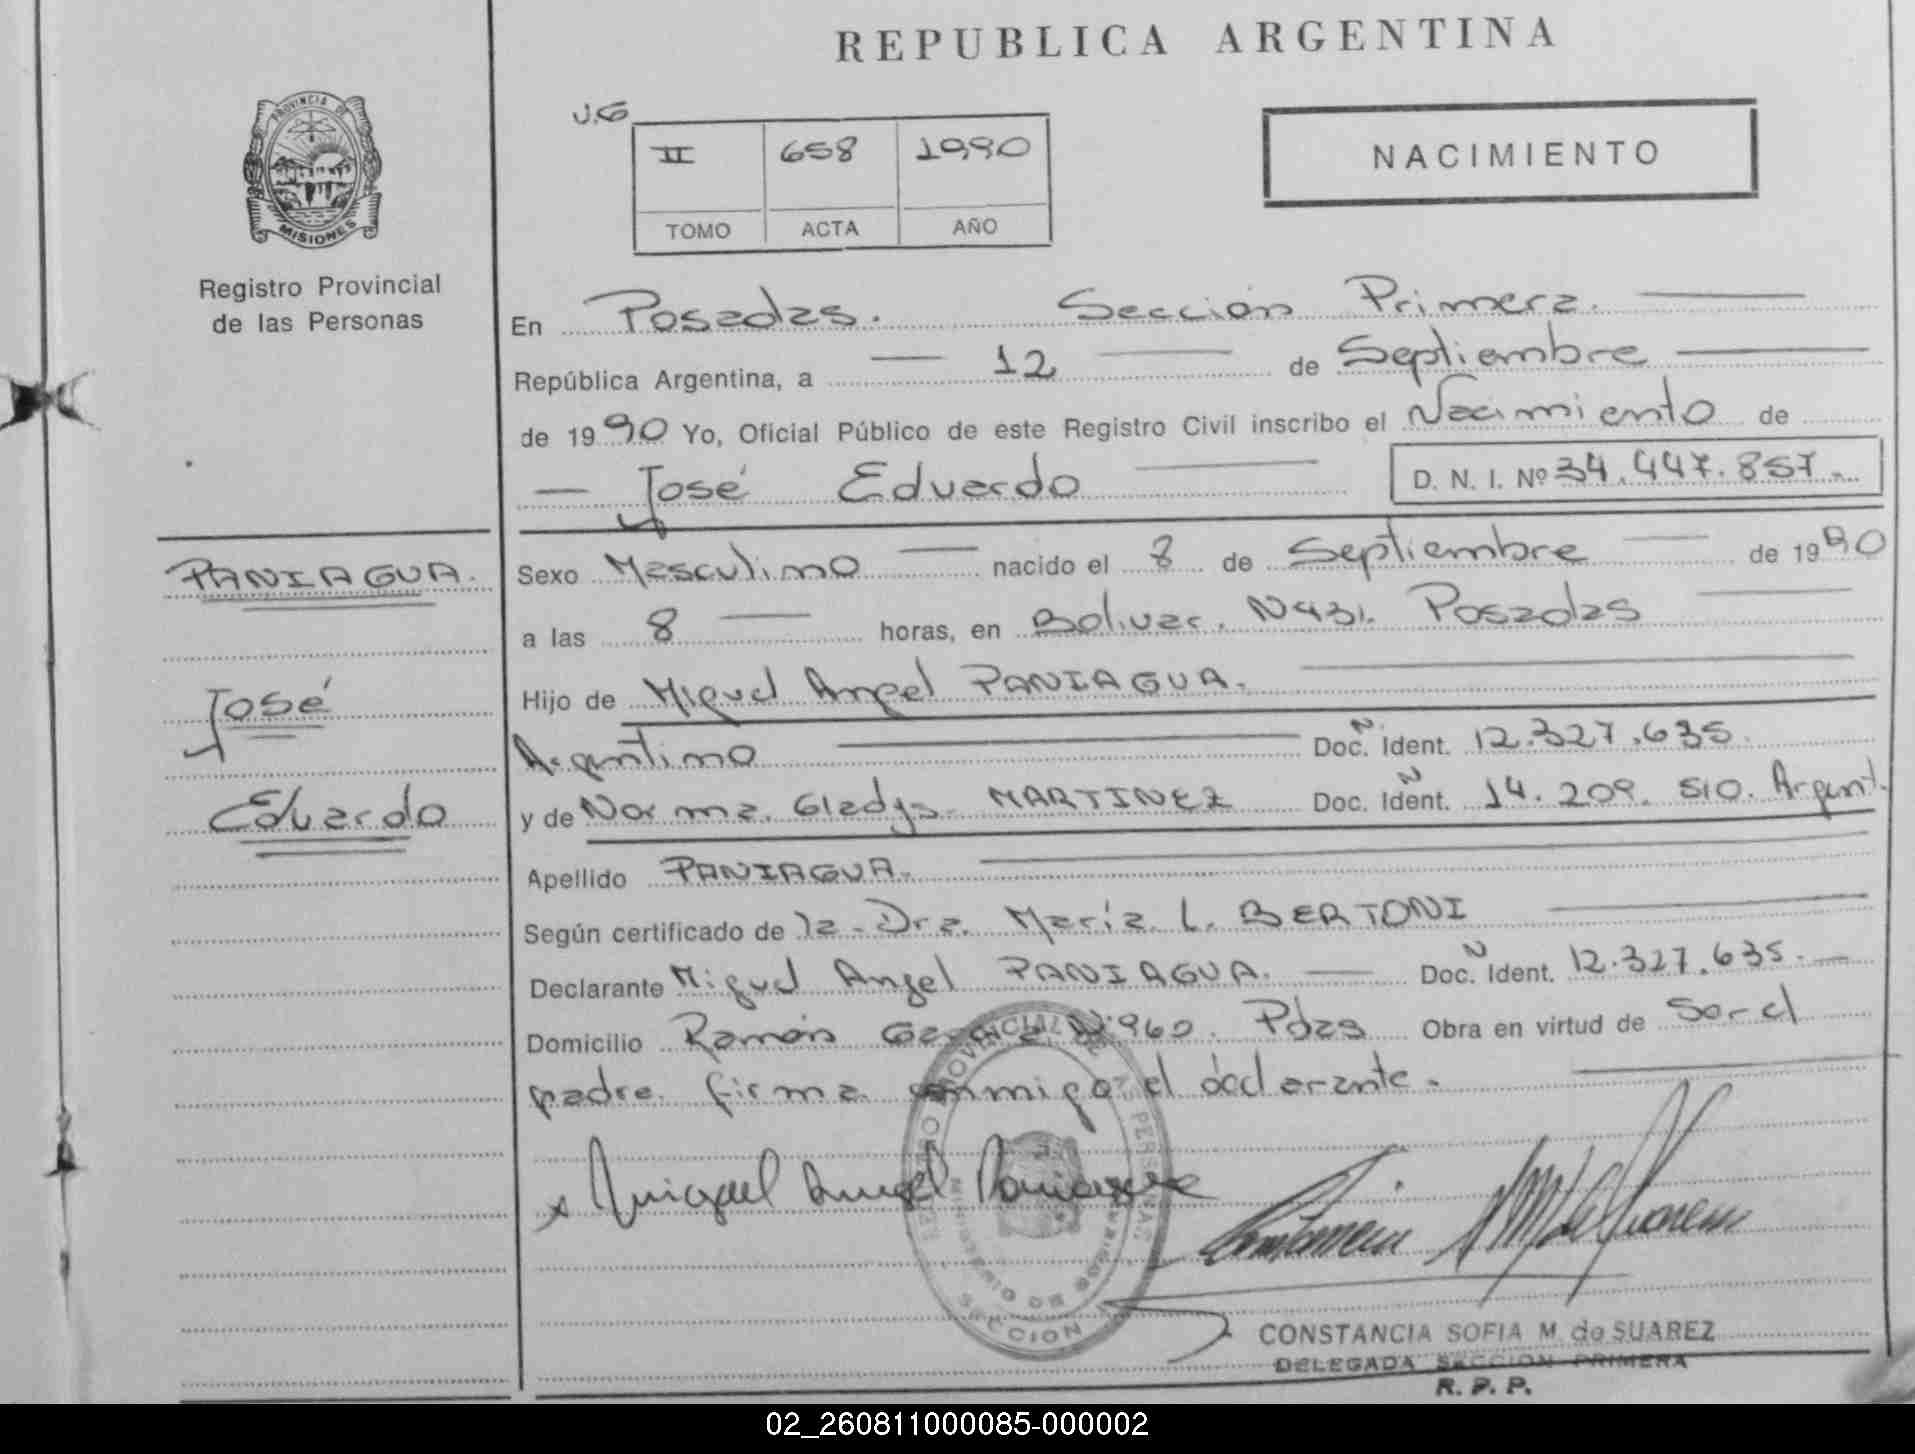 REPUBLICA ARGENTINA
PROVINCIA DE
MISIONES
Registro Provincial
de las Personas
J.G
II 658 1990
TOMO ACTA AÑO
NACIMIENTO
En Posadas. Sección Primera.
República Argentina, a 12 de Septiembre
de 1990 Yo, Oficial Público de este Registro Civil inscribo el Nacimiento de
José Eduardo D. N. I. Nº 34.447.857.
PANIAGUA.
José
Eduardo
Sexo Masculino nacido el 8 de Septiembre de 1990
a las 8 horas, en Bolivar. N431. Posadas
Hijo de Miguel Angel PANIAGUA.
Argentino Doc. Ident. N 12.327.635.
y de Norma. Gladys. MARTINEZ Doc. Ident. N 14.209.510. Argent.
Apellido PANIAGUA.
Según certificado de la Dra. María L. BERTONI
Declarante Miguel Angel PANIAGUA. Doc. Ident. N 12.327.635.
Domicilio Ramón García Nº960. Pdas Obra en virtud de Ser el
padre. firma conmigo el declarante.
REGISTRO PROVINCIAL DE LAS PERSONAS
SECCION
x Miguel Angel Paniagua
CONSTANCIA SOFIA M. de SUAREZ
DELEGADA SECCION PRIMERA
R. P. P.
02_260811000085-000002